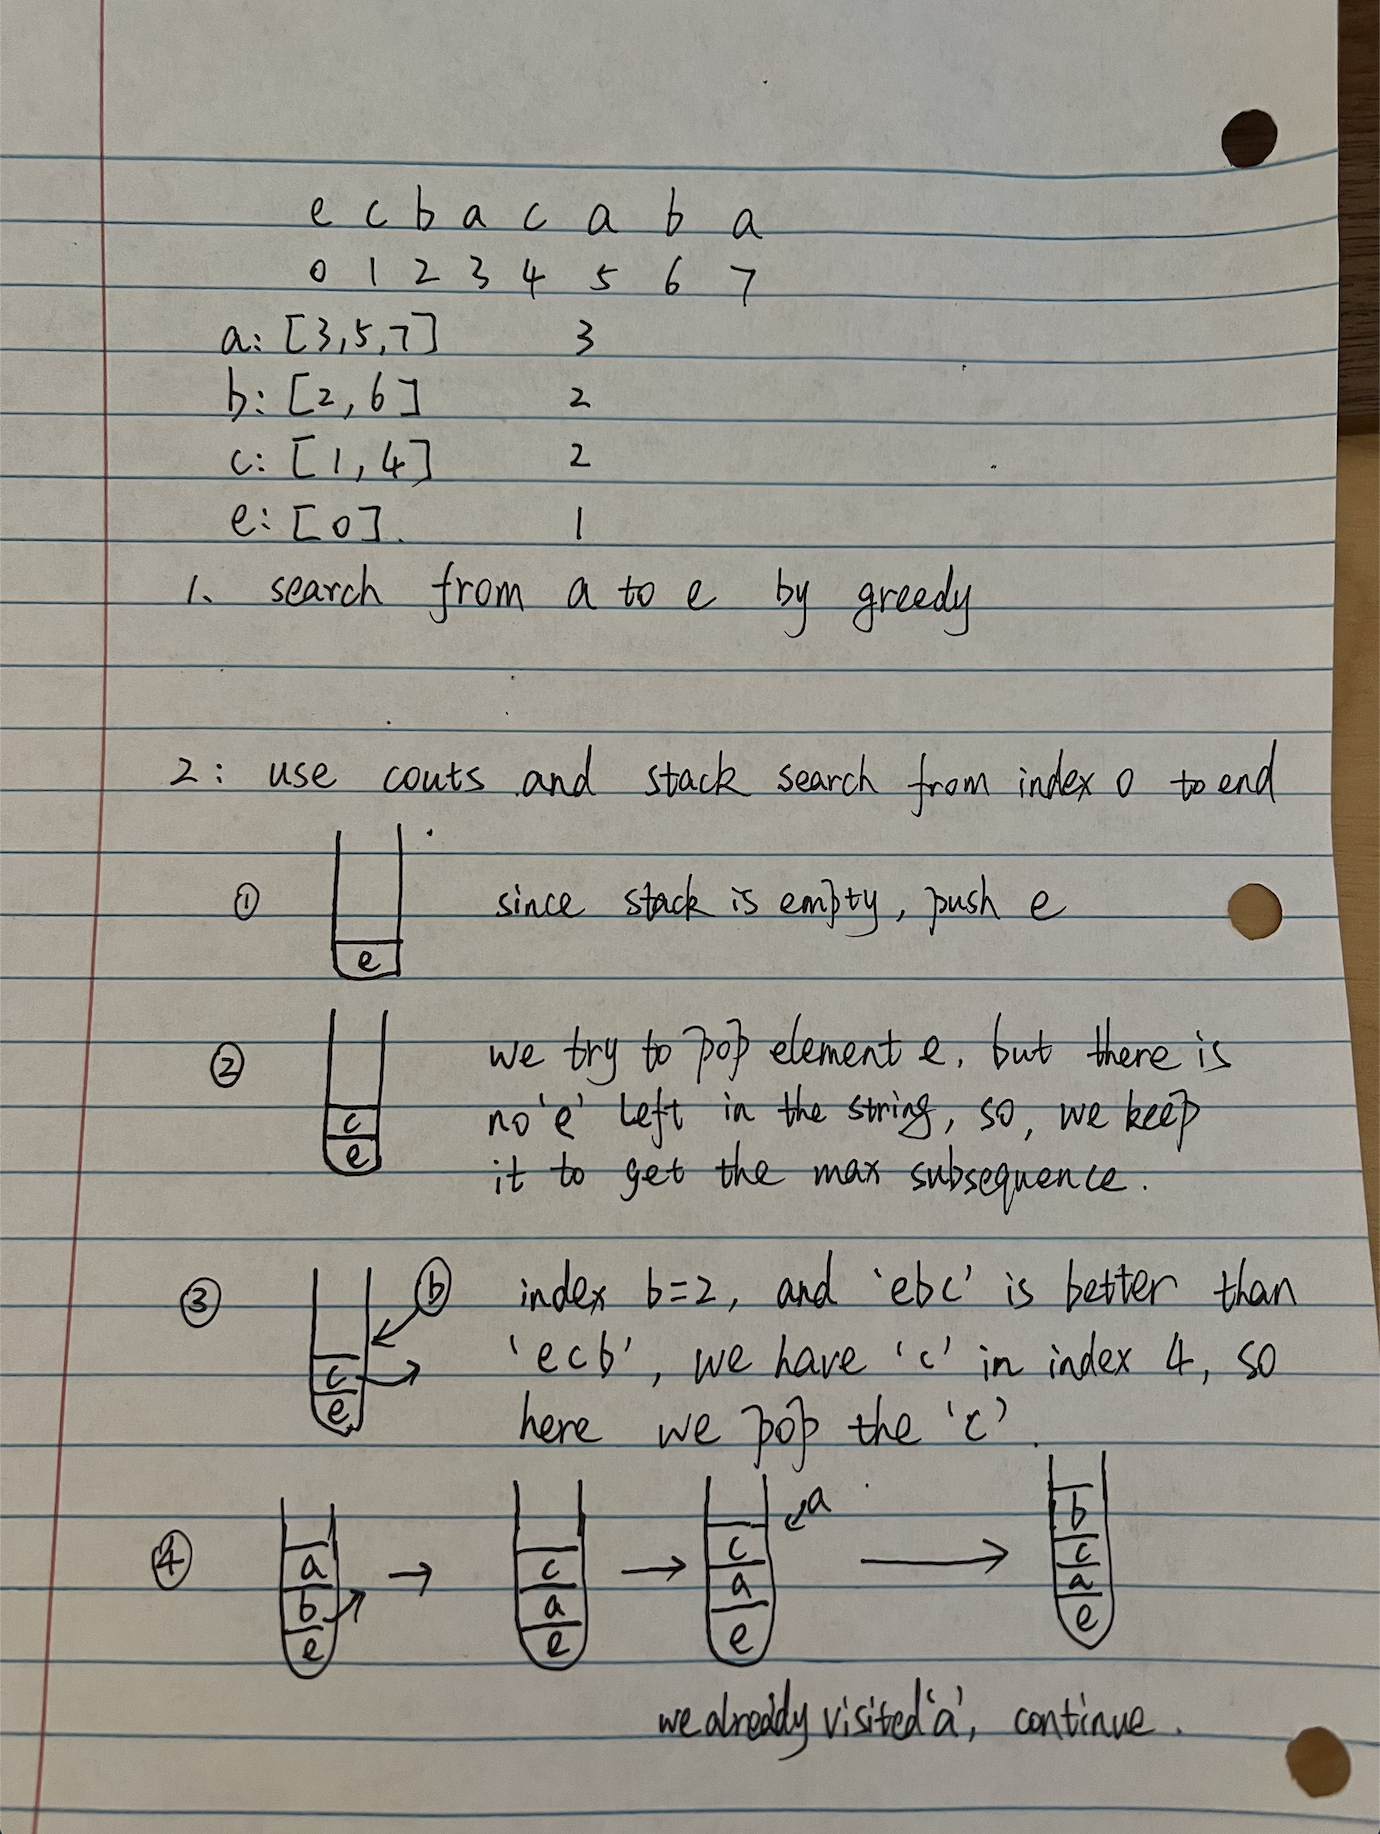 e c b a c a b a
0 1 2 3 4 5 6 7
a: [3,5,7] 3
b: [2,6] 2
c: [1,4] 2
e: [0]. 1
1. search from a to e by greedy
2: use couts and stack search from index 0 to end
① since stack is empty, push e
e
② we try to pop element e, but there is
c no 'e' left in the string, so, we keep
e it to get the max subsequence.
③ b index b=2, and 'ebc' is better than
c 'ecb', we have 'c' in index 4, so
e here we pop the 'c'.
④ a b e → c a e → c a e a → b c a e
we already visited 'a', continue.